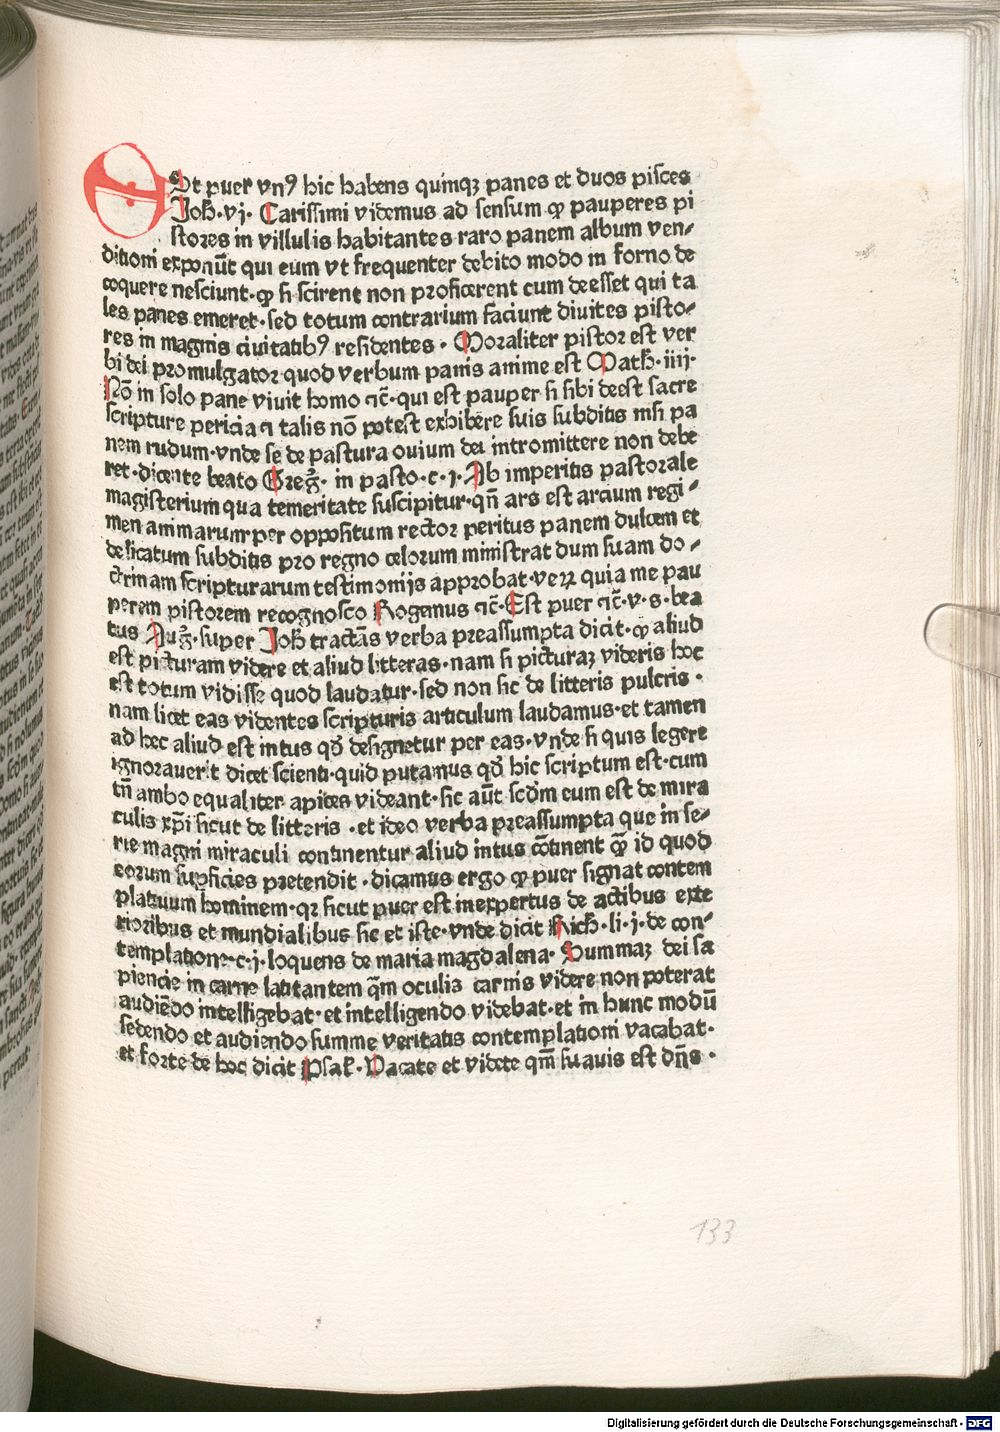 ESt puer vnꝰ hic habens quinqꝫ panes et duos pisces
Joh̄·vj· Carissimi videmus ad sensum ꝙ pauperes pi
stores in villulis habitantes raro panem album ven⸗
ditioni exponūt qui eum vt frequenter debito modo in forno de
coquere nesciunt·ꝙ si scirent non proficerent cum deesset qui ta
les panes emeret·sed totum contrarium faciunt diuites pisto⸗
res in magnis ciuitatibꝰ residentes· Moraliter pistor est ver
bi dei promulgator quod verbum panis anime est Math̄·iiij·
Nō in solo pane viuit homo ⁊c̄·qui est pauper si sibi deest sacre
scripture pericia ⁊ talis nō potest exhibere suis subditis nisi pa
nem rudum·vnde se de pastura ouium dei intromittere non debe
ret·dicente beato Greg̃· in pasto·c·j·Ab imperitis pastorale
magisterium qua temeritate suscipitur·qn̄ ars est arcium regi⸗
men animarum per oppositum rector peritus panem dulcem et
delicatum subditis pro regno celorum ministrat dum suam do⸗
ctrinam scripturarum testimonijs approbat·veꝝ quia me pau
perem pistorem recognosco Rogemus ⁊c̄·Est puer ⁊c̄·v·s·bea
tus Aug̃·super Joh̄ tractās verba preassumpta dicit·ꝙ aliud
est picturam videre et aliud litteras·nam si picturaꝫ videris hoc
est totum vidisse quod laudatur·sed non sic de litteris pulcris·
nam licet eas videntes scripturis articulum laudamus·et tamen
ad hec aliud est intus qd̄ designetur per eas·vnde si quis legere
ignorauerit dicet scienti·quid putamus qd̄ hic scriptum est·cum
tn̄ ambo equaliter apices videant·sic aūt scd̄m eum est de mira
culis xp̄i sicut de litteris·et ideo verba preassumpta que in se⸗
rie magni miraculi continentur aliud intus cōtinent ꝙ̄ id quod
eorum suꝑficies pretendit·dicamus ergo ꝙ puer signat contem
platiuum hominem·qꝛ sicut puer est inexpertus de actibus exte
rioribus et mundialibus sic et iste·vnde dicit Rich̄·li·j·de con⸗
templatione·c·j·loquens de maria magdalena· Summaꝫ dei sa
piencie in carne latitantem q̄m oculis carnis videre non poterat
audiēdo intelligebat·et intelligendo videbat·et in hunc modū
sedendo et audiendo summe veritatis contemplationi vacabat·
et forte de hoc dicit Psal̄·Vacate et videte qm̄ suauis est dn̄s·
133
Digitalisierung gefördert durch die Deutsche Forschungsgemeinschaft - DFG